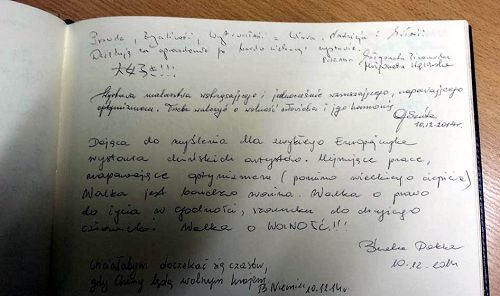 Prawda, Życzliwość, Wytrwałość = Wiara, Nadzieja i Miłość
Dziękuję za oprowadzenie po bardzo ciekawej wystawie.
Małgorzata
!!!
Wystawa malarstwa wstrząsającego i jednocześnie wzruszającego, napawającego
optymizmem. Trzeba walczyć o wolność człowieka i jego harmonię
10.12.2014r.
Dająca do myślenia dla zwykłego Europejczyka
wystawa chińskich artystów. Ujmujące prace,
napawające optymizmem (pomimo wielkiego cierpienia)
Walka jest bardzo ważna. Walka o prawo
do życia w godności, szacunku do drugiego
człowieka. Walka o WOLNOŚĆ!!!
10-12-2014
Chciałabym doczekać się czasów,
gdy Chiny będą wolnym krajem
B. Niemiec 10.12.14r.